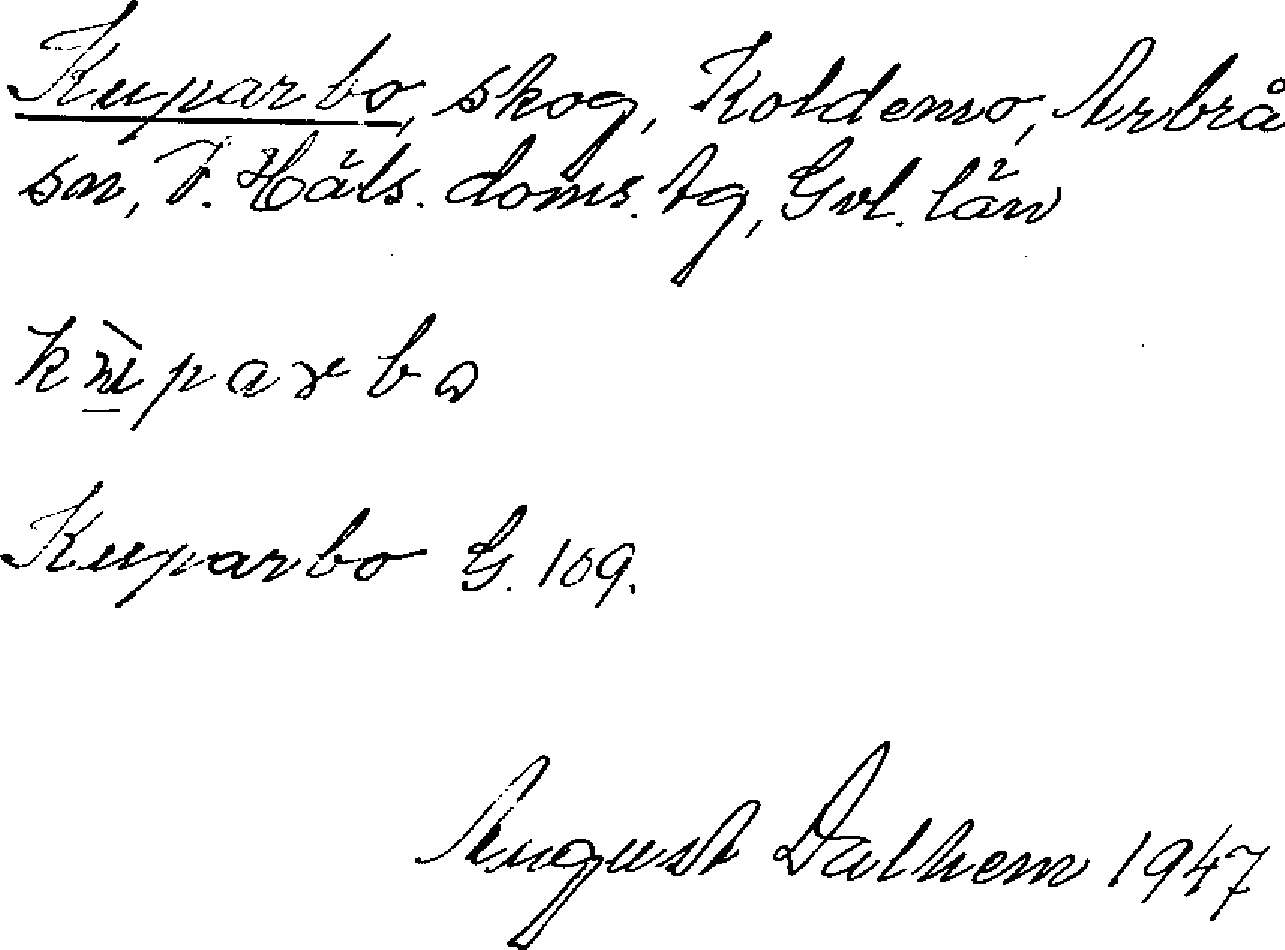 Kuparbo, skog, Koldemo, Arbrå
sn, V. Häls. doms. tg, Gvl. län
kùparbo
Kuparbo G. 109.
August Dalhem 1947